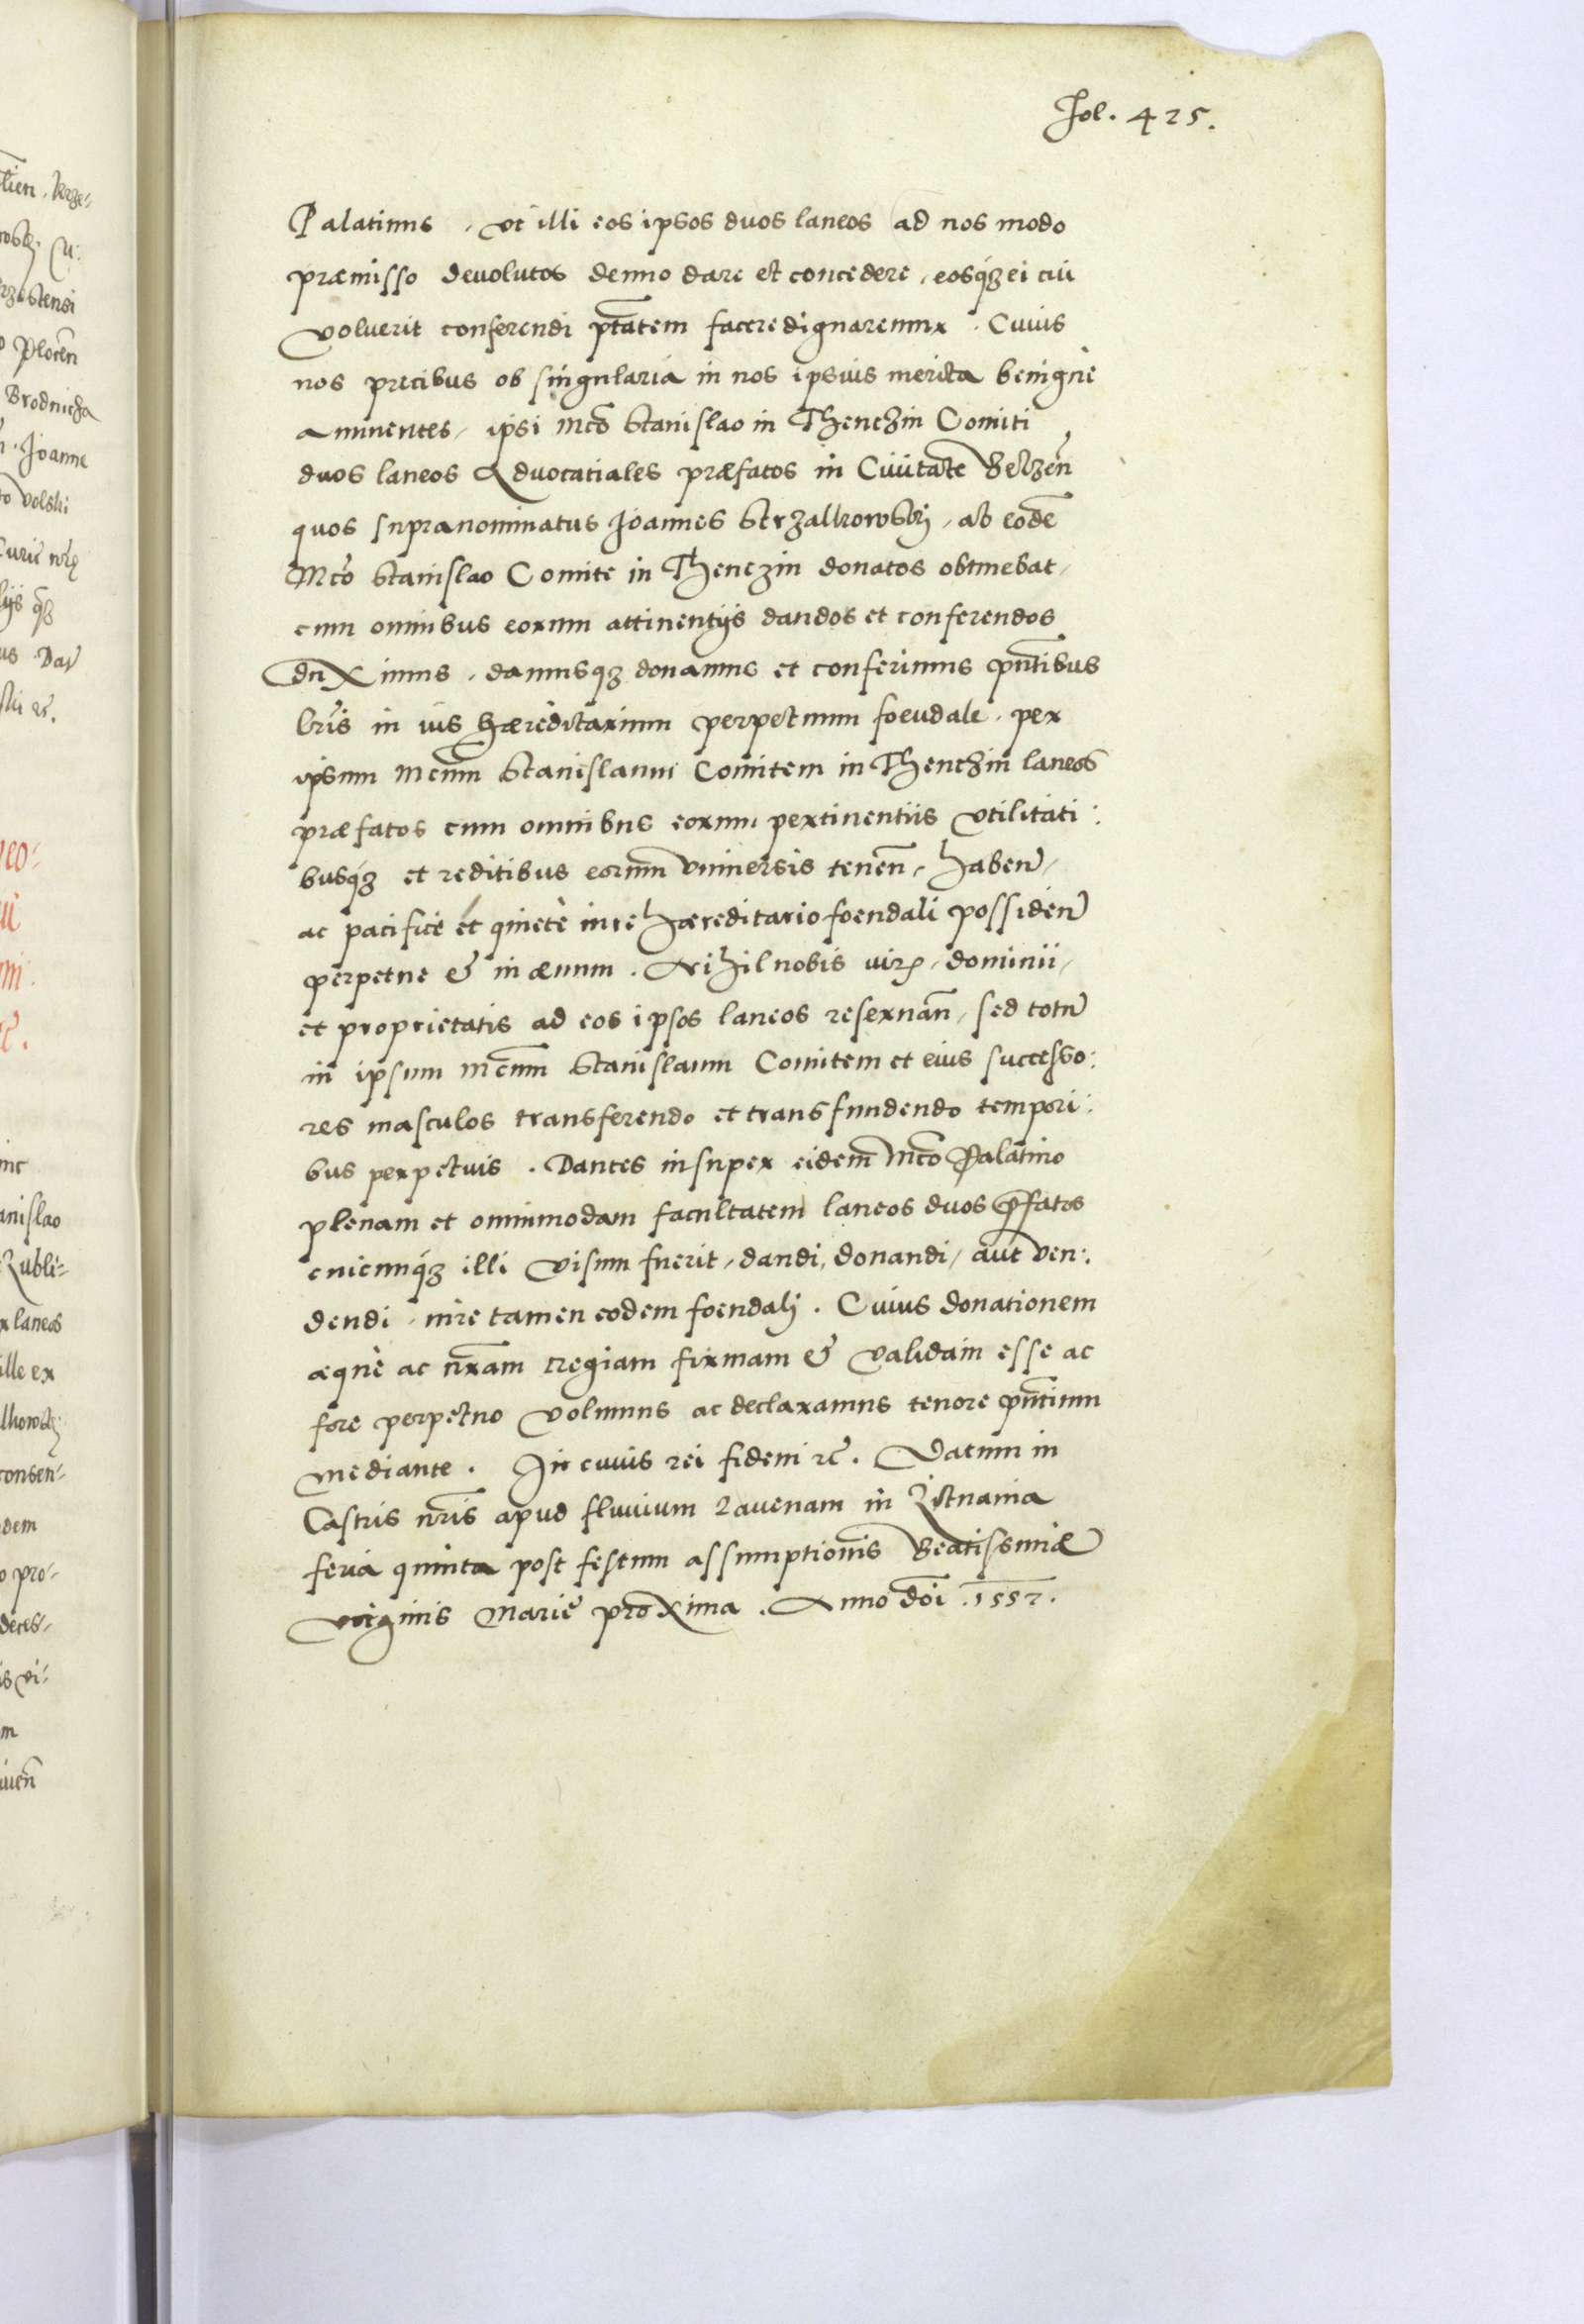 Fol. 425.
Palatinus, vt illi eos ipsos duos laneos ad nos modo
præmisso deuolutos denuo dare et concedere, eosq́ȝ ei cui
voluerit conferendi ptãtem facere dignaremur. Cuius
nos precibus ob singularia in nos ipsius merita benignè
annuentes, ipsi Mcõ Stanislao in Thenczin Comiti
duos laneos Aduocatiales præfatos in Ciuitate Belzeñ
quos supranominatus Joannes Strzalkowskij, ab eodẽ
Mcõ Stanislao Comite in Thenczin donatos obtinebat,
cum omnibus eorum attinentijs dandos et conferendos
duximus, damusqȝ donamus et conferimus pñtibus
lr̃is in ius hæreditarium perpetuum foeudale, per
ipsum Mcum̃ Stanislaum Comitem in Thenczin laneos
præfatos cum omnibus eorum pertinentiis vtilitati:
busq́ȝ et reditibus eorum vniuersis teneñ, habeñ,
ac pacificè et quietè iure hæreditario foeudali possideñ
perpetue & in æuum. Nihil nobis iuris, dominii,
et proprietatis ad eos ipsos laneos reseruañ, sed totũ
in ipsum Mcum̃ Stanislaum Comitem et eius successo:
res masculos transferendo et transfundendo tempori:
bus perpetuis. Dantes insuper eidem Mcõ Palatino
plenam et omnimodam facultatem laneos duos p̃fatos
cuicunq́ȝ illi visum fuerit, dandi, donandi, aut ven:
dendi, iure tamen eodem foeudalj. Cuius donationem
æquè ac nr̃am regiam firmam & validam esse ac
fore perpetuo volumus ac declaramus tenore pñtium
mediante. In cuius rei fidem rc̃. Datum in
Castris nr̃is apud fluuium Rauenam in Litnania
feria quinta post festum assumptionis Beatissimæ
virginis Marie proxima. Anno dñi .1557.